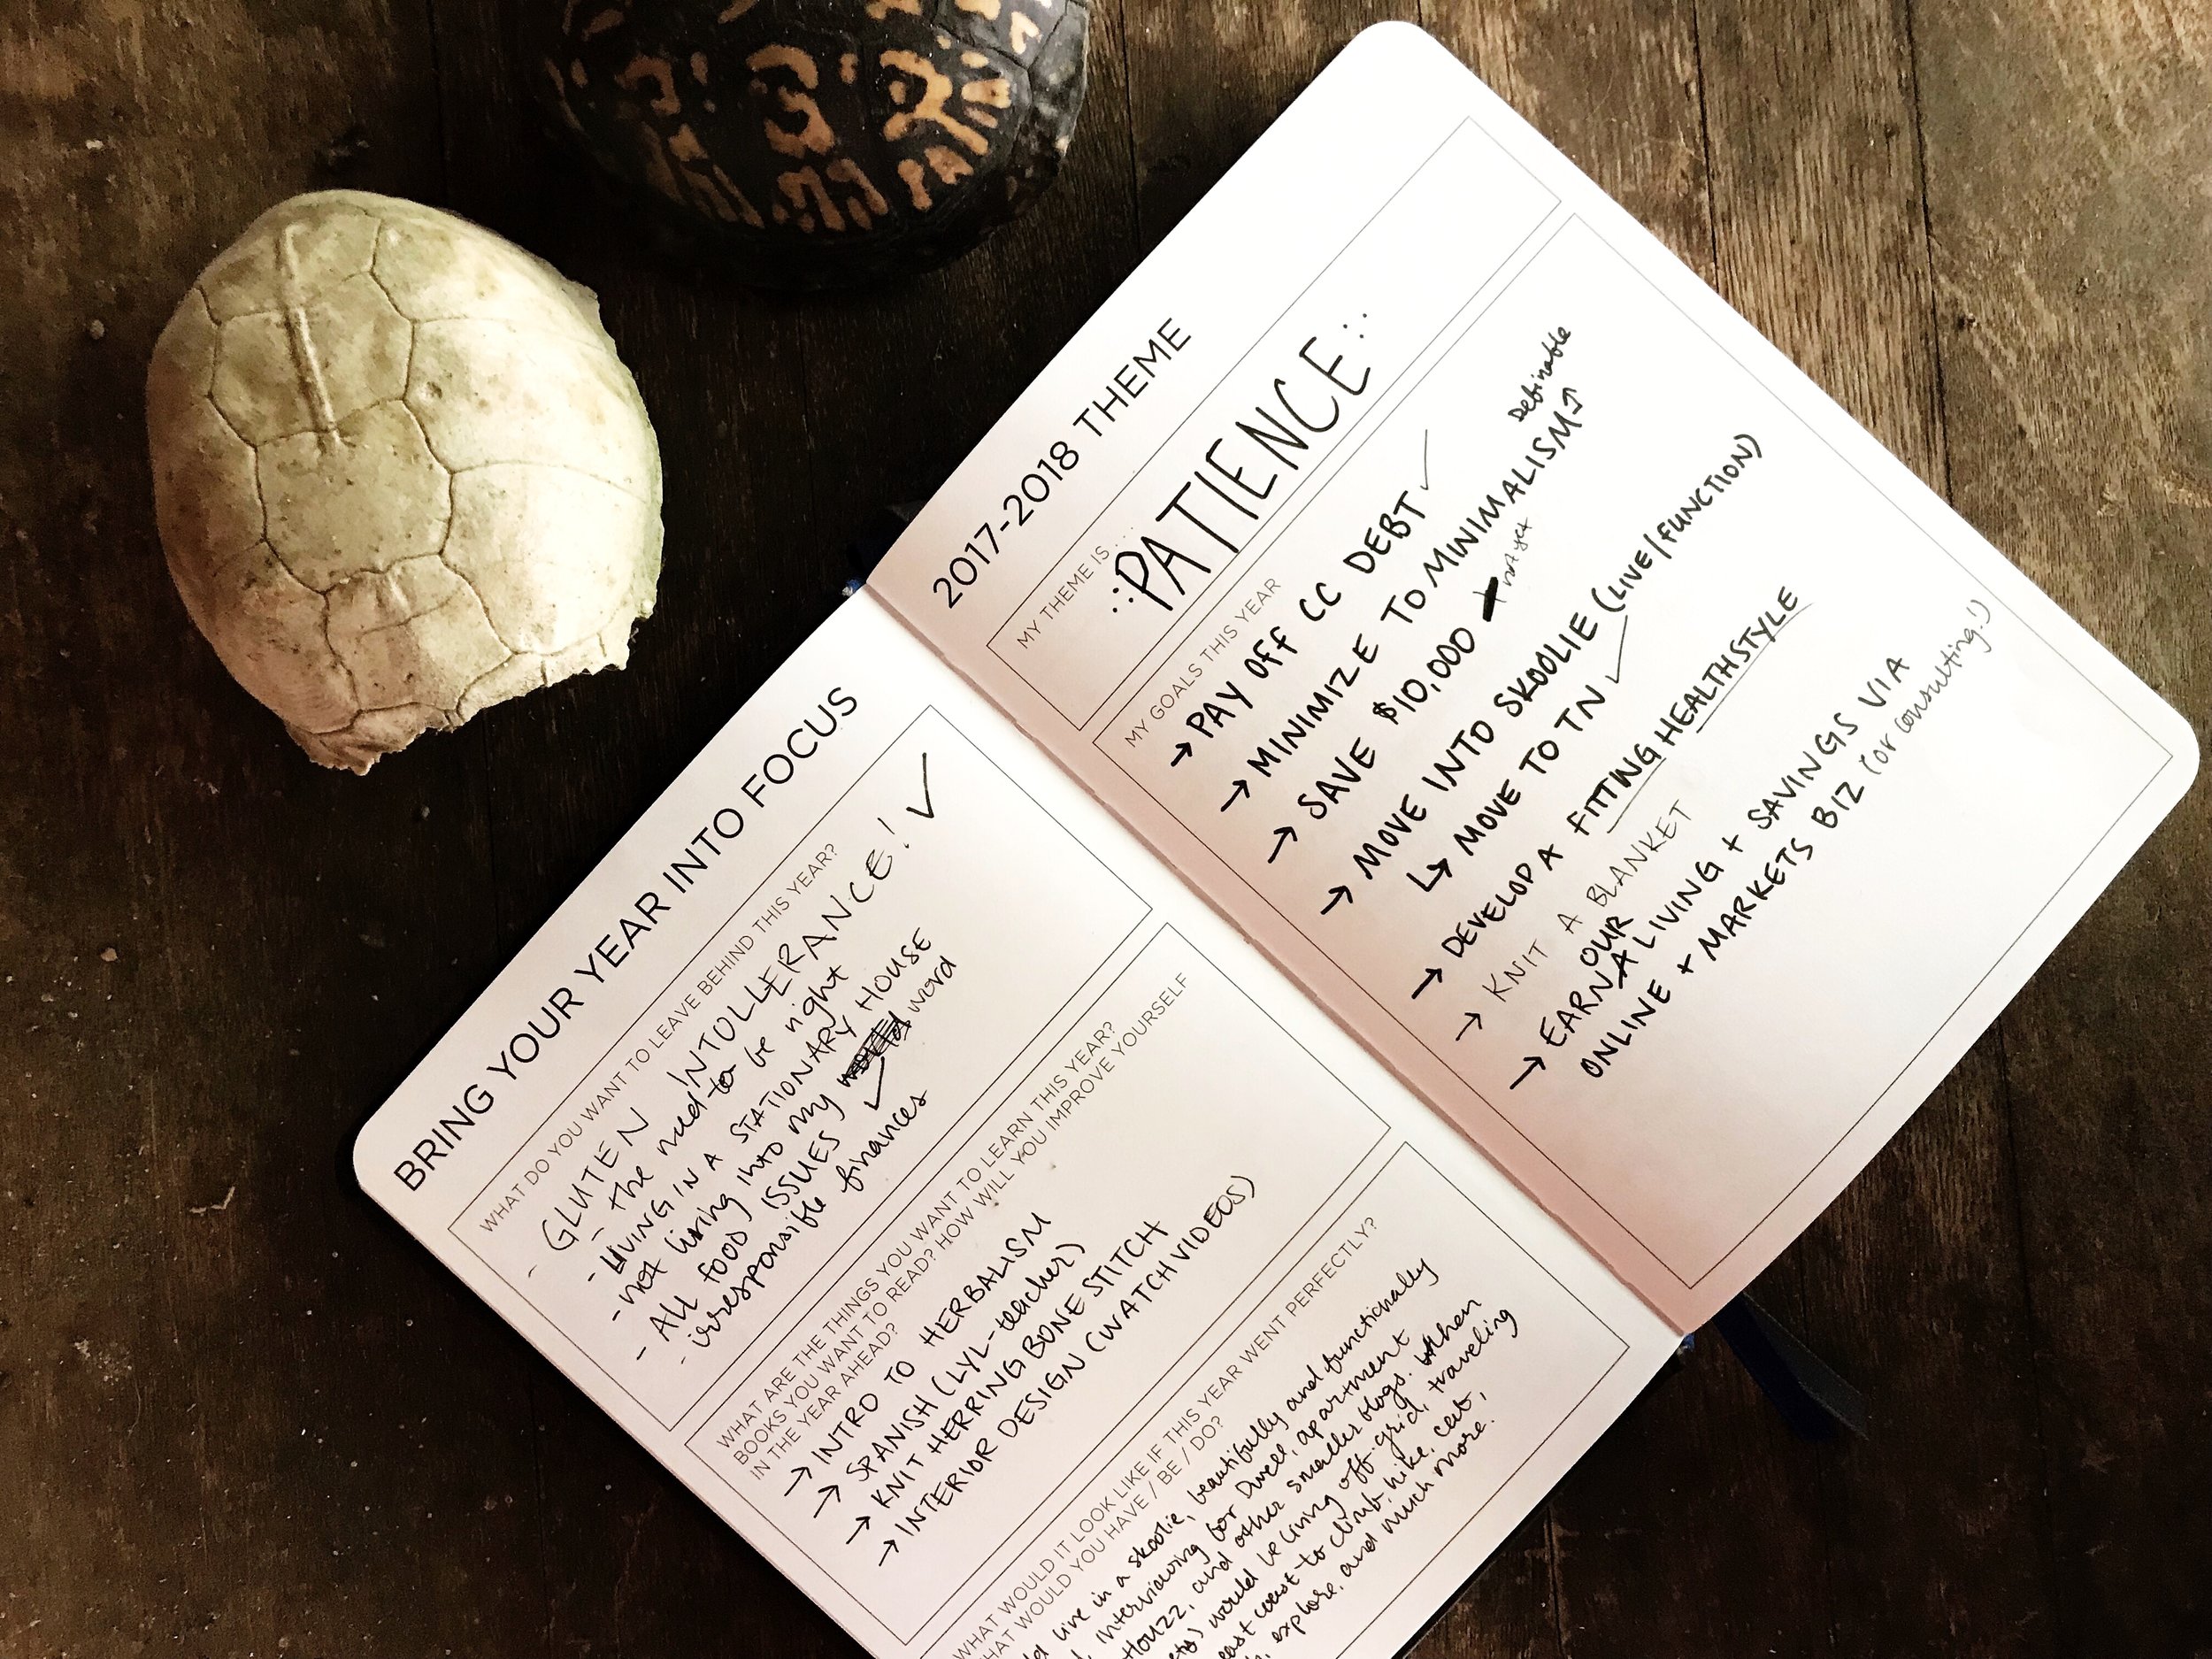 BRING YOUR YEAR INTO FOCUS
WHAT DO YOU WANT TO LEAVE BEHIND THIS YEAR?
- GLUTEN INTOLLERANCE! ✓
- the need to be right
- LIVING IN A STATIONARY HOUSE
- not living into my word
- ALL FOOD ISSUES ✓
- irresponsible finances
WHAT ARE THE THINGS YOU WANT TO LEARN THIS YEAR?
BOOKS YOU WANT TO READ? HOW WILL YOU IMPROVE YOURSELF
IN THE YEAR AHEAD?
→ INTRO TO HERBALISM
→ SPANISH (LYL-teacher)
→ KNIT HERRING BONE STITCH
→ INTERIOR DESIGN (WATCH VIDEOS)
WHAT WOULD IT LOOK LIKE IF THIS YEAR WENT PERFECTLY?
WHAT WOULD YOU HAVE / BE / DO?
live in a skoolie, beautifully and functionally
Interviewing for Dwell, apartment
Houzz, and other smaller blogs. When
would be living off-grid, traveling
east coast to climb, hike, eat,
explore, and much more.
2017-2018 THEME
MY THEME IS...
PATIENCE
MY GOALS THIS YEAR
→ PAY OFF CC DEBT ✓
Definable
→ MINIMIZE TO MINIMALISM
→ SAVE $10,000 not yet
→ MOVE INTO SKOOLIE (LIVE/FUNCTION)
↳ MOVE TO TN ✓
→ DEVELOP A FITTING HEALTHSTYLE
→ KNIT A BLANKET
OUR
→ EARN A LIVING + SAVINGS VIA
ONLINE + MARKETS BIZ (or consulting!)